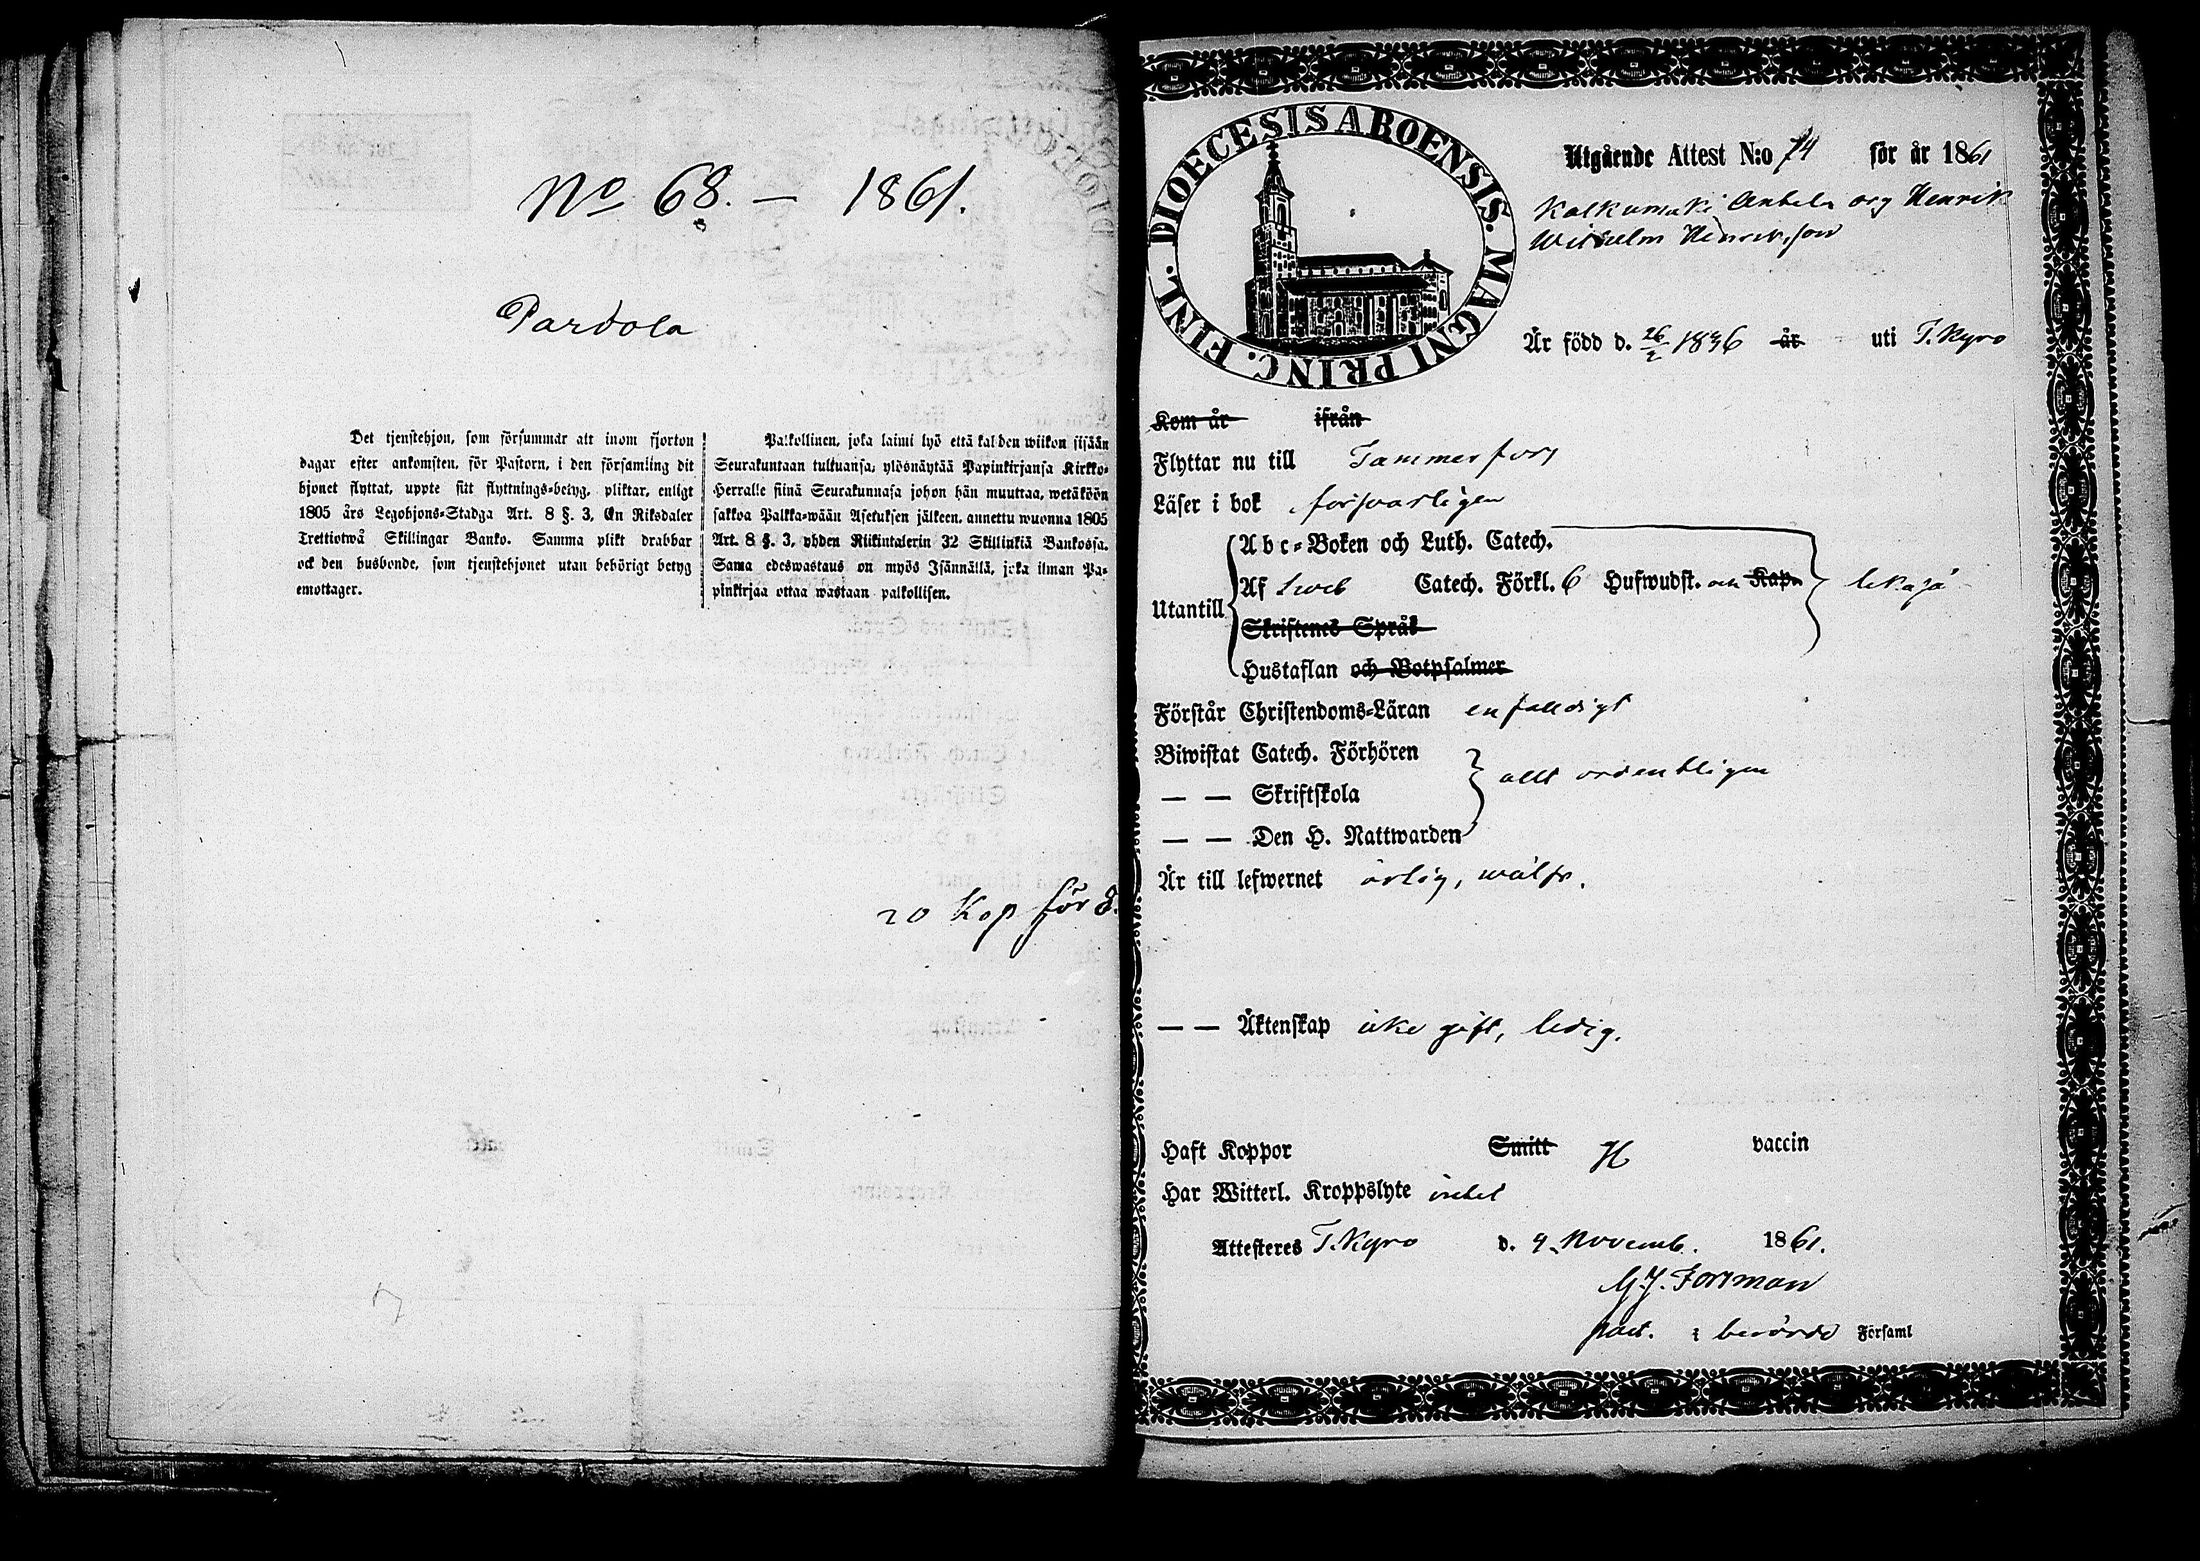 No 68. — 1861.
Pardola
Det tjenstehjon, som försummar att inom fjorton
dagar efter ankomsten, för Pastorn, i den församling dit
hjonet flyttat, uppte sitt flyttnings-betyg, pliktar, enligt
1805 års Legohjons-Stadga Art. 8 §. 3, En Riksdaler
Trettiotwå Skillingar Banko. Samma plikt drabbar
ock den husbonde, som tjenstehjonet utan behörigt betyg
emottager.
Palkollinen, joka laimi lyö että kahden wiikon sisään
Seurakuntaan tultuansa, ylösnäytää Papinkirjansa Kirkko-
Herralle siinä Seurakunnasa johon hän muuttaa, wetäköön
sakkoa Palkka-wään Asetuksen jälkeen, annettu wuonna 1805
Art. 8 §. 3, yhden Riikintalerin 32 Skillinkiä Bankossa.
Sama edeswastaus on myös Isännällä, joka ilman Pa-
pinkirjaa ottaa wastaan palkollisen.
20 Kop för
DIOECESIS ABOENSIS. MAGNI PRINC. FINL.
Utgående Attest N:o 74 för år 1861
Henrik
Wilhelm Henriksson
Är född d. 26/2 1836 år uti T.Kyro
Kom år ifrån
Flyttar nu till Tammerfors
Läser i bok försvarligen
Abc-Boken och Luth. Catech.
Utantill Af Sweb Catech. Förkl. 6 Hufwudst. och Kap. likaså
Skriftenes Språk
Hustaflan och Botpsalmer
Förstår Christendoms-Läran enfaldigt
Biwistat Catech. Förhören
— — Skriftskola allt ordentligen
— — Den H. Nattwarden
Är till lefwernet ärlig, wälfr.
— — Äktenskap icke gift, ledig.
Haft Koppor Smitt H vaccin
Har Witterl. Kroppslyte intet
Attesteres T.Kyro d. 9. Novemb. 1861.
G.J. Forsman
past. i berörde Församl